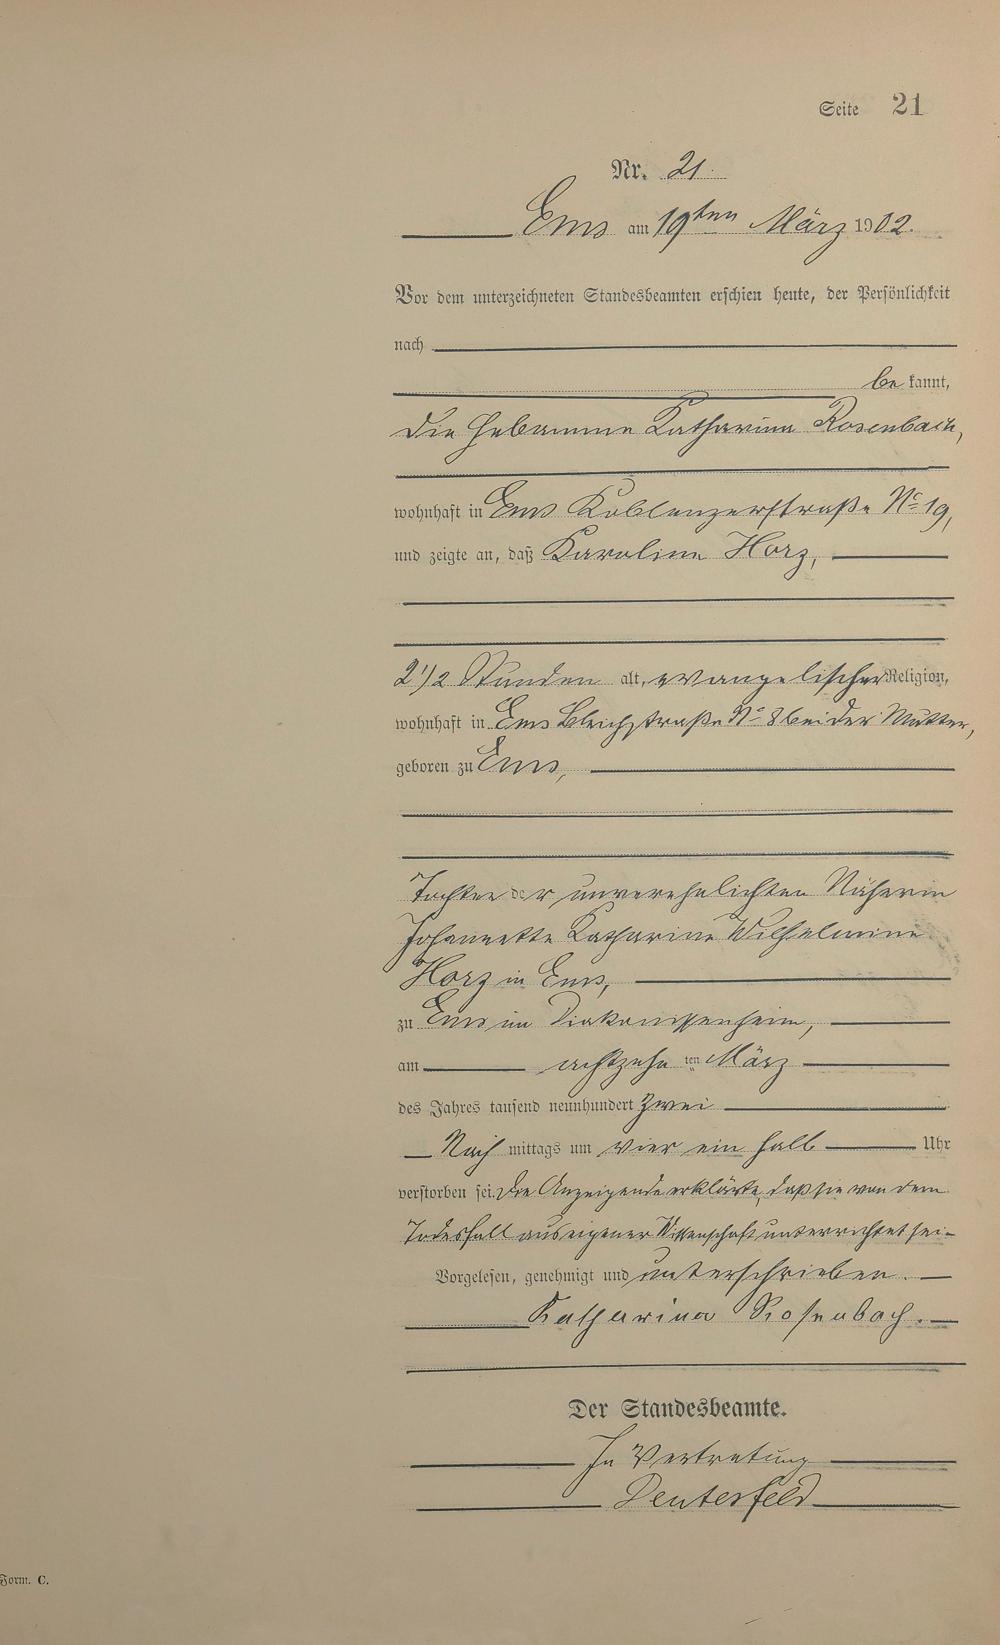 Seite 21
Nr. 21.
Ems am 19ten März 1902.
Vor dem unterzeichneten Standesbeamten erschien heute, der Persönlichkeit
nach
be kannt,
die Hebamme Katharina Rosenbach,
wohnhaft in Ems Koblenzerstraße No 19,
und zeigte an, daß Karoline Horz,
2 1/2 Stunden alt, evangelischer Religion,
wohnhaft in Ems Bleichstraße No 8 bei der Mutter,
geboren zu Ems,
Tochter der unverehelichten Näherin
Johannette Katharine Wilhelmine
Horz in Ems,
zu Ems im Diakonissenheim,
am achtzehn ten März
des Jahres tausend neunhundert zwei
Nach mittags um vier ein halb Uhr
verstorben sei. Die Anzeigende erklärte, daß sie von dem
Todesfall aus eigener Wissenschaft unterrichtet sei-
Vorgelesen, genehmigt und unterschrieben.
Katharina Rosenbach.
Der Standesbeamte.
In Vertretung
Deuterfeld
Form. C.